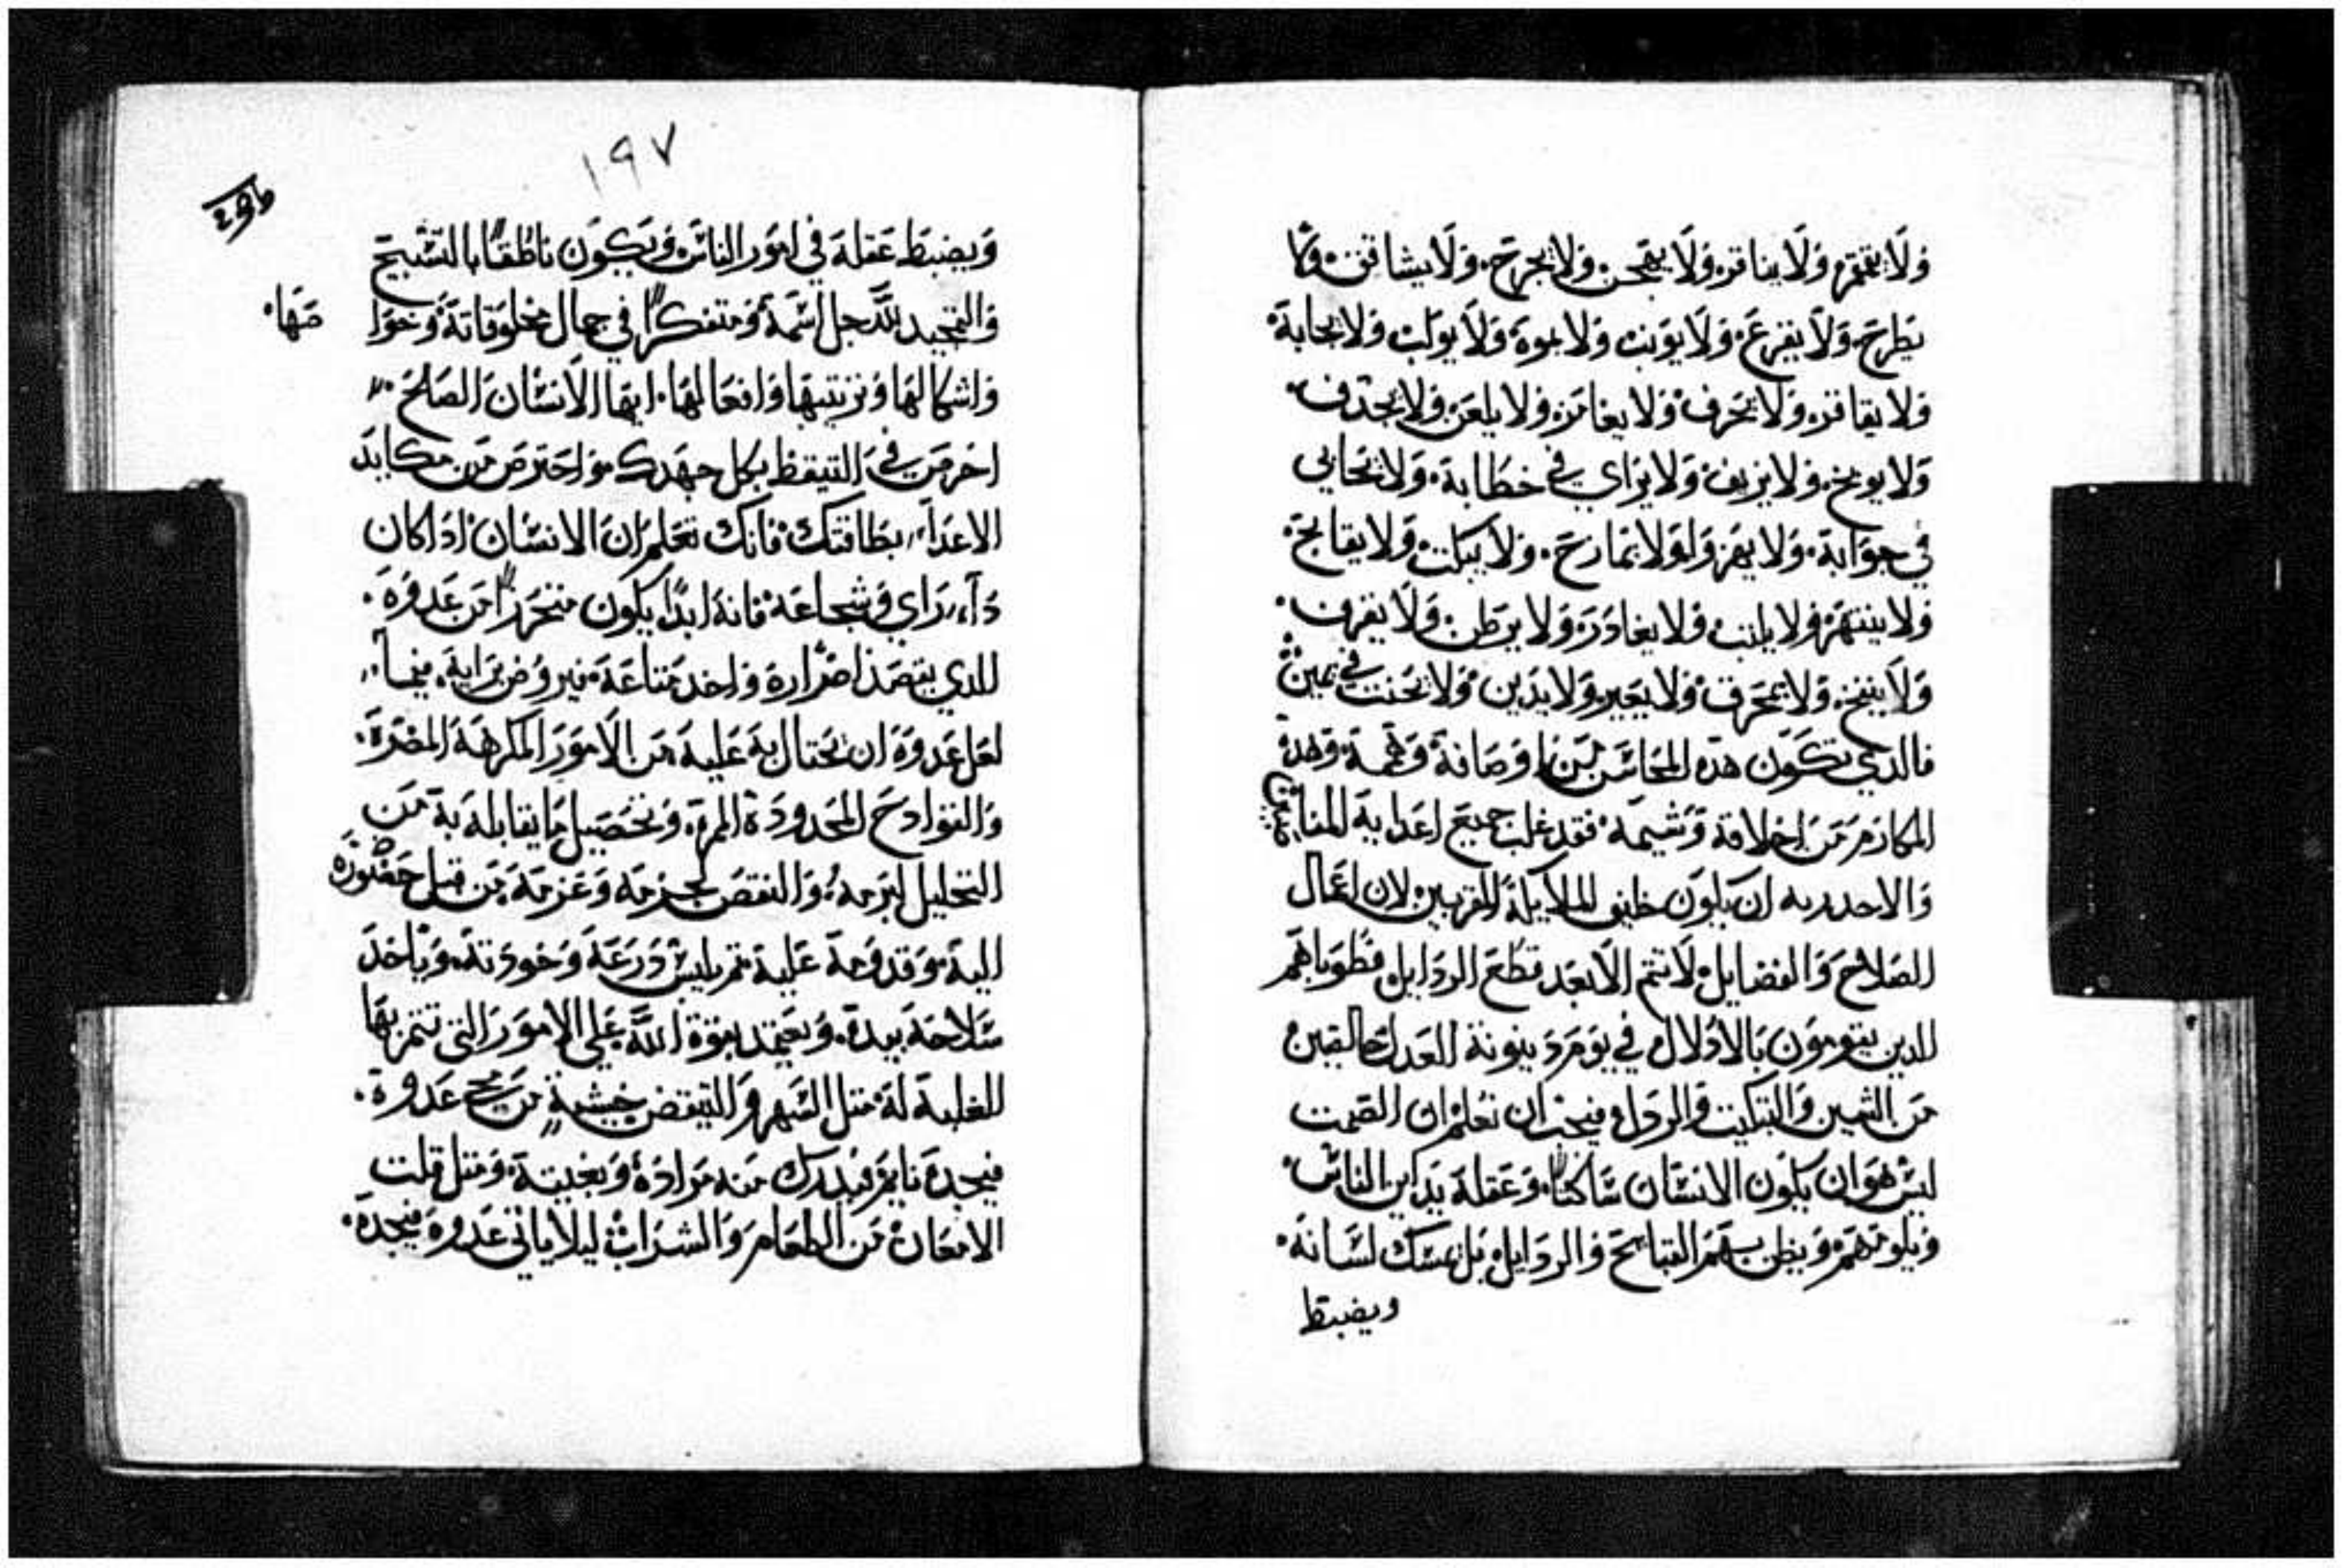 ولا يقمقم ولا ينافر ولا يهجن ولا يجرح ولا يشاقق ولا
يطرح ولا يفزع ولا يونب ولا يموه ولا يولب ولا يجابه
ولا يقافز ولا يحرف ولا يغامز ولا يلعن ولا يجدف
ولا يوبخ ولا يزيف ولا يراي في خطابة ولا يحابي
في جوابة ولا يهزو ولا يمازح ولا يبكت ولا يقابح
ولا ينتهر ولا يلب ولا يغادر ولا يرطن ولا يقرف
ولا ينفخ ولا يمخرق ولا يعير ولا يدين ولا يحنت في يمين
فالدي تكون هده المحاسن وصافة وهده
المكارم من اخلاقة وشيمة فقد غلب جميع اعدايه
والاجدر به ان يكون خليفي للملايكة المقربين لان اعمال
الصلاح والفضايل لا تتم الا بعد قطع الردايل فطوباهم
للدين يقومون بالادلال في يوم دينونة العدل خالصين
من الشين والتبكيت والردل فيجب ان تعلم ان الصمت
ليس هو ان يكون الانسان ساكتا وعقلة يداين الناس
ويلومهم ويظن بهم القبايح والردايل بل يمسك لسانة
ويضبط
١٩٧
296
ويضبط عقلة في امور الناس ويكون ناطقا بالتسبيح
والتمجيد لله جل اسمة ومتفكرا في جمال مخلوقاتة وخوا
صها
واشكالها وترتيبها وافعالها ايها الانسان الصالح
احرص في التيقظ بكل جهدك واحترص من مكايد
الاعداء بطاقتك فانك تعلم ان الانسان ادا كان
دا راي وشجاعة فانة ابدا يكون متحررا من عدوة
للدي يقصد اضرارة واخد متاعة فيروض براية فيما
لعل عدوة ان يحتال بة علية من الامور المكرهة المضرة
والقوادح المحدودة المرة وتحصيل ما يقابلة بة من
التحليل لبرمة والنقض لحزمة وعزمة من قبل حضورة
الية وقدومة علية تم يلبس درعة وخودتة وياخد
سلاحة بيدة ويعتمد بقوة الله علي الامور التي تتم بها
الغلبة لة متل السهر والتيقض خيشة من يجي عدوة
فيجدة نايم فيدرك منه مرادة وبغيتة ومتل قلت
الامعان من الطعام والشراب ليلا ياتي عدوة فيجدة